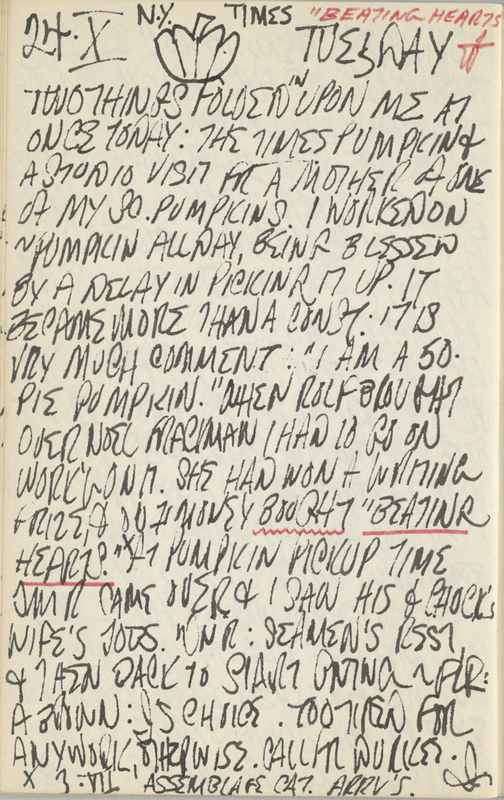 N.Y. TIMES "BEATING HEARTS
24·X TUESDAY
TWO THINGS FOLDED UPON ME AT
ONCE TODAY: THE TIMES PUMPKIN &
A STUDIO VISIT FR A MOTHER OF ONE
OF MY SO. PUMPKINS. I WORKED ON
~PUMPKIN ALL DAY, BEING BLESSED
BY A DELAY IN PICKING IT UP. IT
BECAME MORE THAN A CONST. IT IS
VRY MUCH COMMENT: "I AM A 50·
PIE PUMPKIN." WHEN ROLF BROUGHT
OVER NOEL FRACKMAN I HAD TO GO ON
WORK'G ON IT. SHE HAD WON A WRITING
PRIZE & MONEY BOUGHT "BEATING
HEARTS." X AT PUMPKIN PICKUP TIME
CAME OVER & I SAW HIS & CHUCK'S
WIFE'S JOBS. DNR: SEAMEN'S REST
& THEN BACK TO START ~ FLR:
A : CHOICE. TOO TIRED FOR
ANY WORK, OTHERWISE. CALL FR DURKEE.
X 3·VII ASSEMBLAGE CAT. ARRV'S.